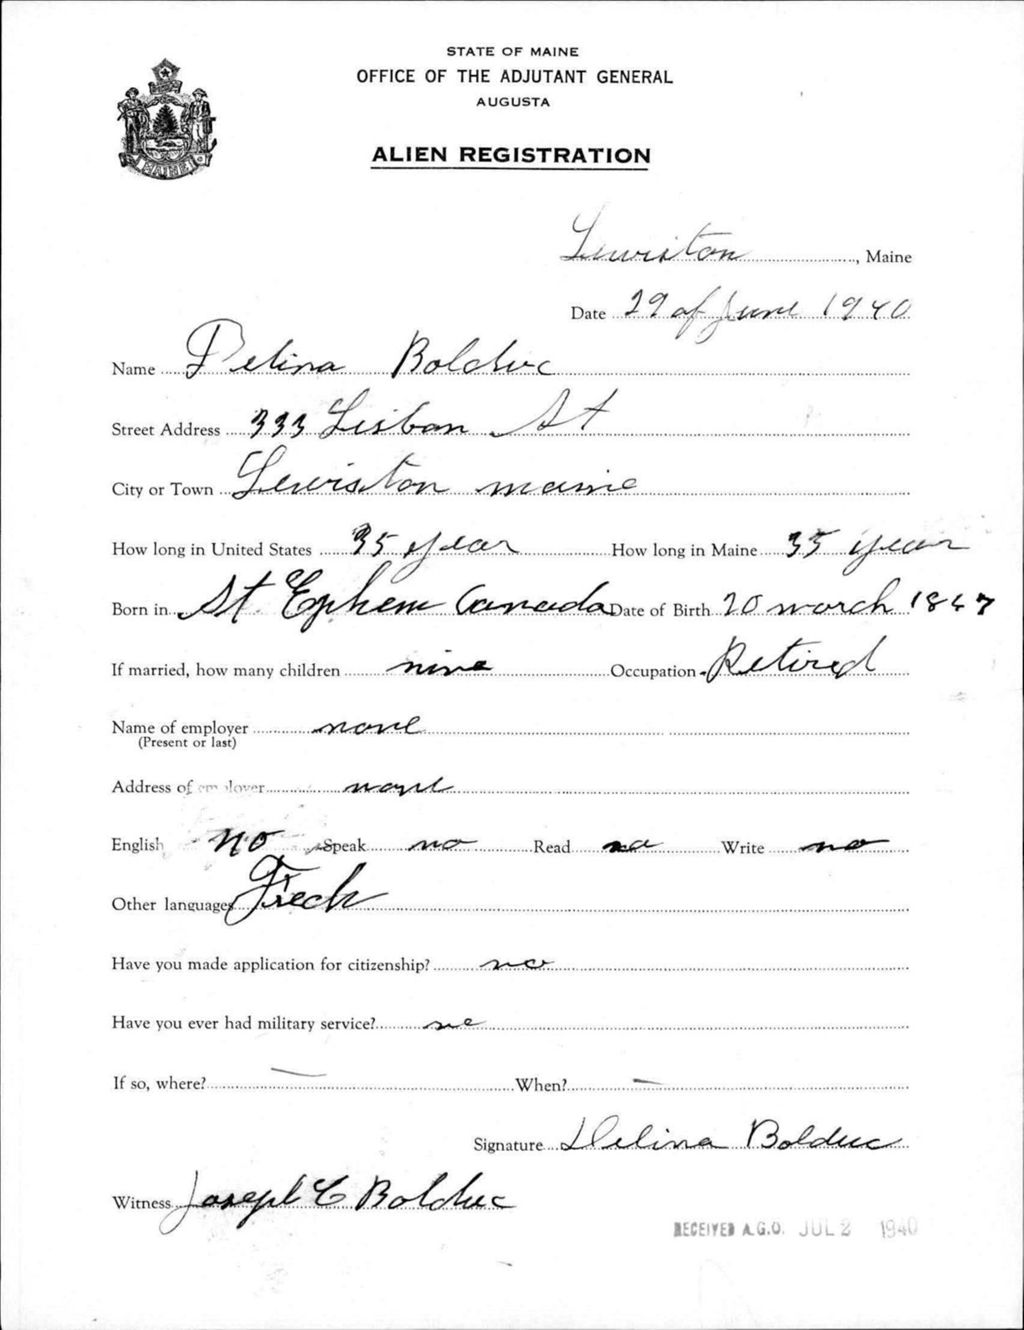 STATE OF MAINE
OFFICE OF THE ADJUTANT GENERAL
AUGUSTA
ALIEN REGISTRATION
MAINE
Lewiston, Maine
Date 29 of June 1940
Name Delina Bolduc
Street Address 333 Lisbon St
City or Town Lewiston maine
How long in United States 35 year How long in Maine 35 year
Born in St. Ephem Canada Date of Birth 20 march 1867
If married, how many children nine Occupation Retired
Name of employer none
(Present or last)
Address of employer none
English no Speak no Read no Write no
Other languages Frech
Have you made application for citizenship? no
Have you ever had military service? no
If so, where? — When? —
Signature Delina Bolduc
Witness Joseph C Bolduc
RECEIVED A.G.O. JUL 2 1940